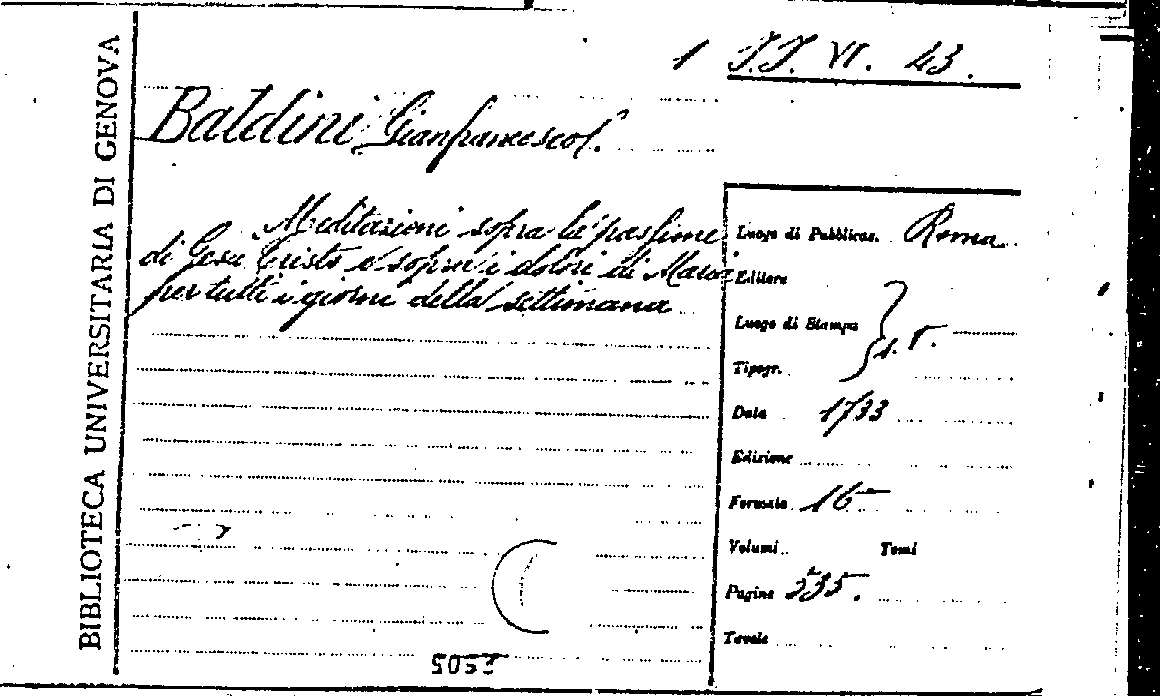 BIBLIOTECA UNIVERSITARIA DI GENOVA
1 J.J. VI. 43.
Baldini Gianfrancesco.
Meditazioni sopra la passione
di Gesù Cristo e sopra i dolori di Maria
per tutti i giorni della settimana
Luogo di Pubblicaz. Roma
Editore
Luogo di Stampa
Tipogr.
Data 1733
Edizione
Formato 16°
Volumi Tomi
Pagine 235.
Tavole